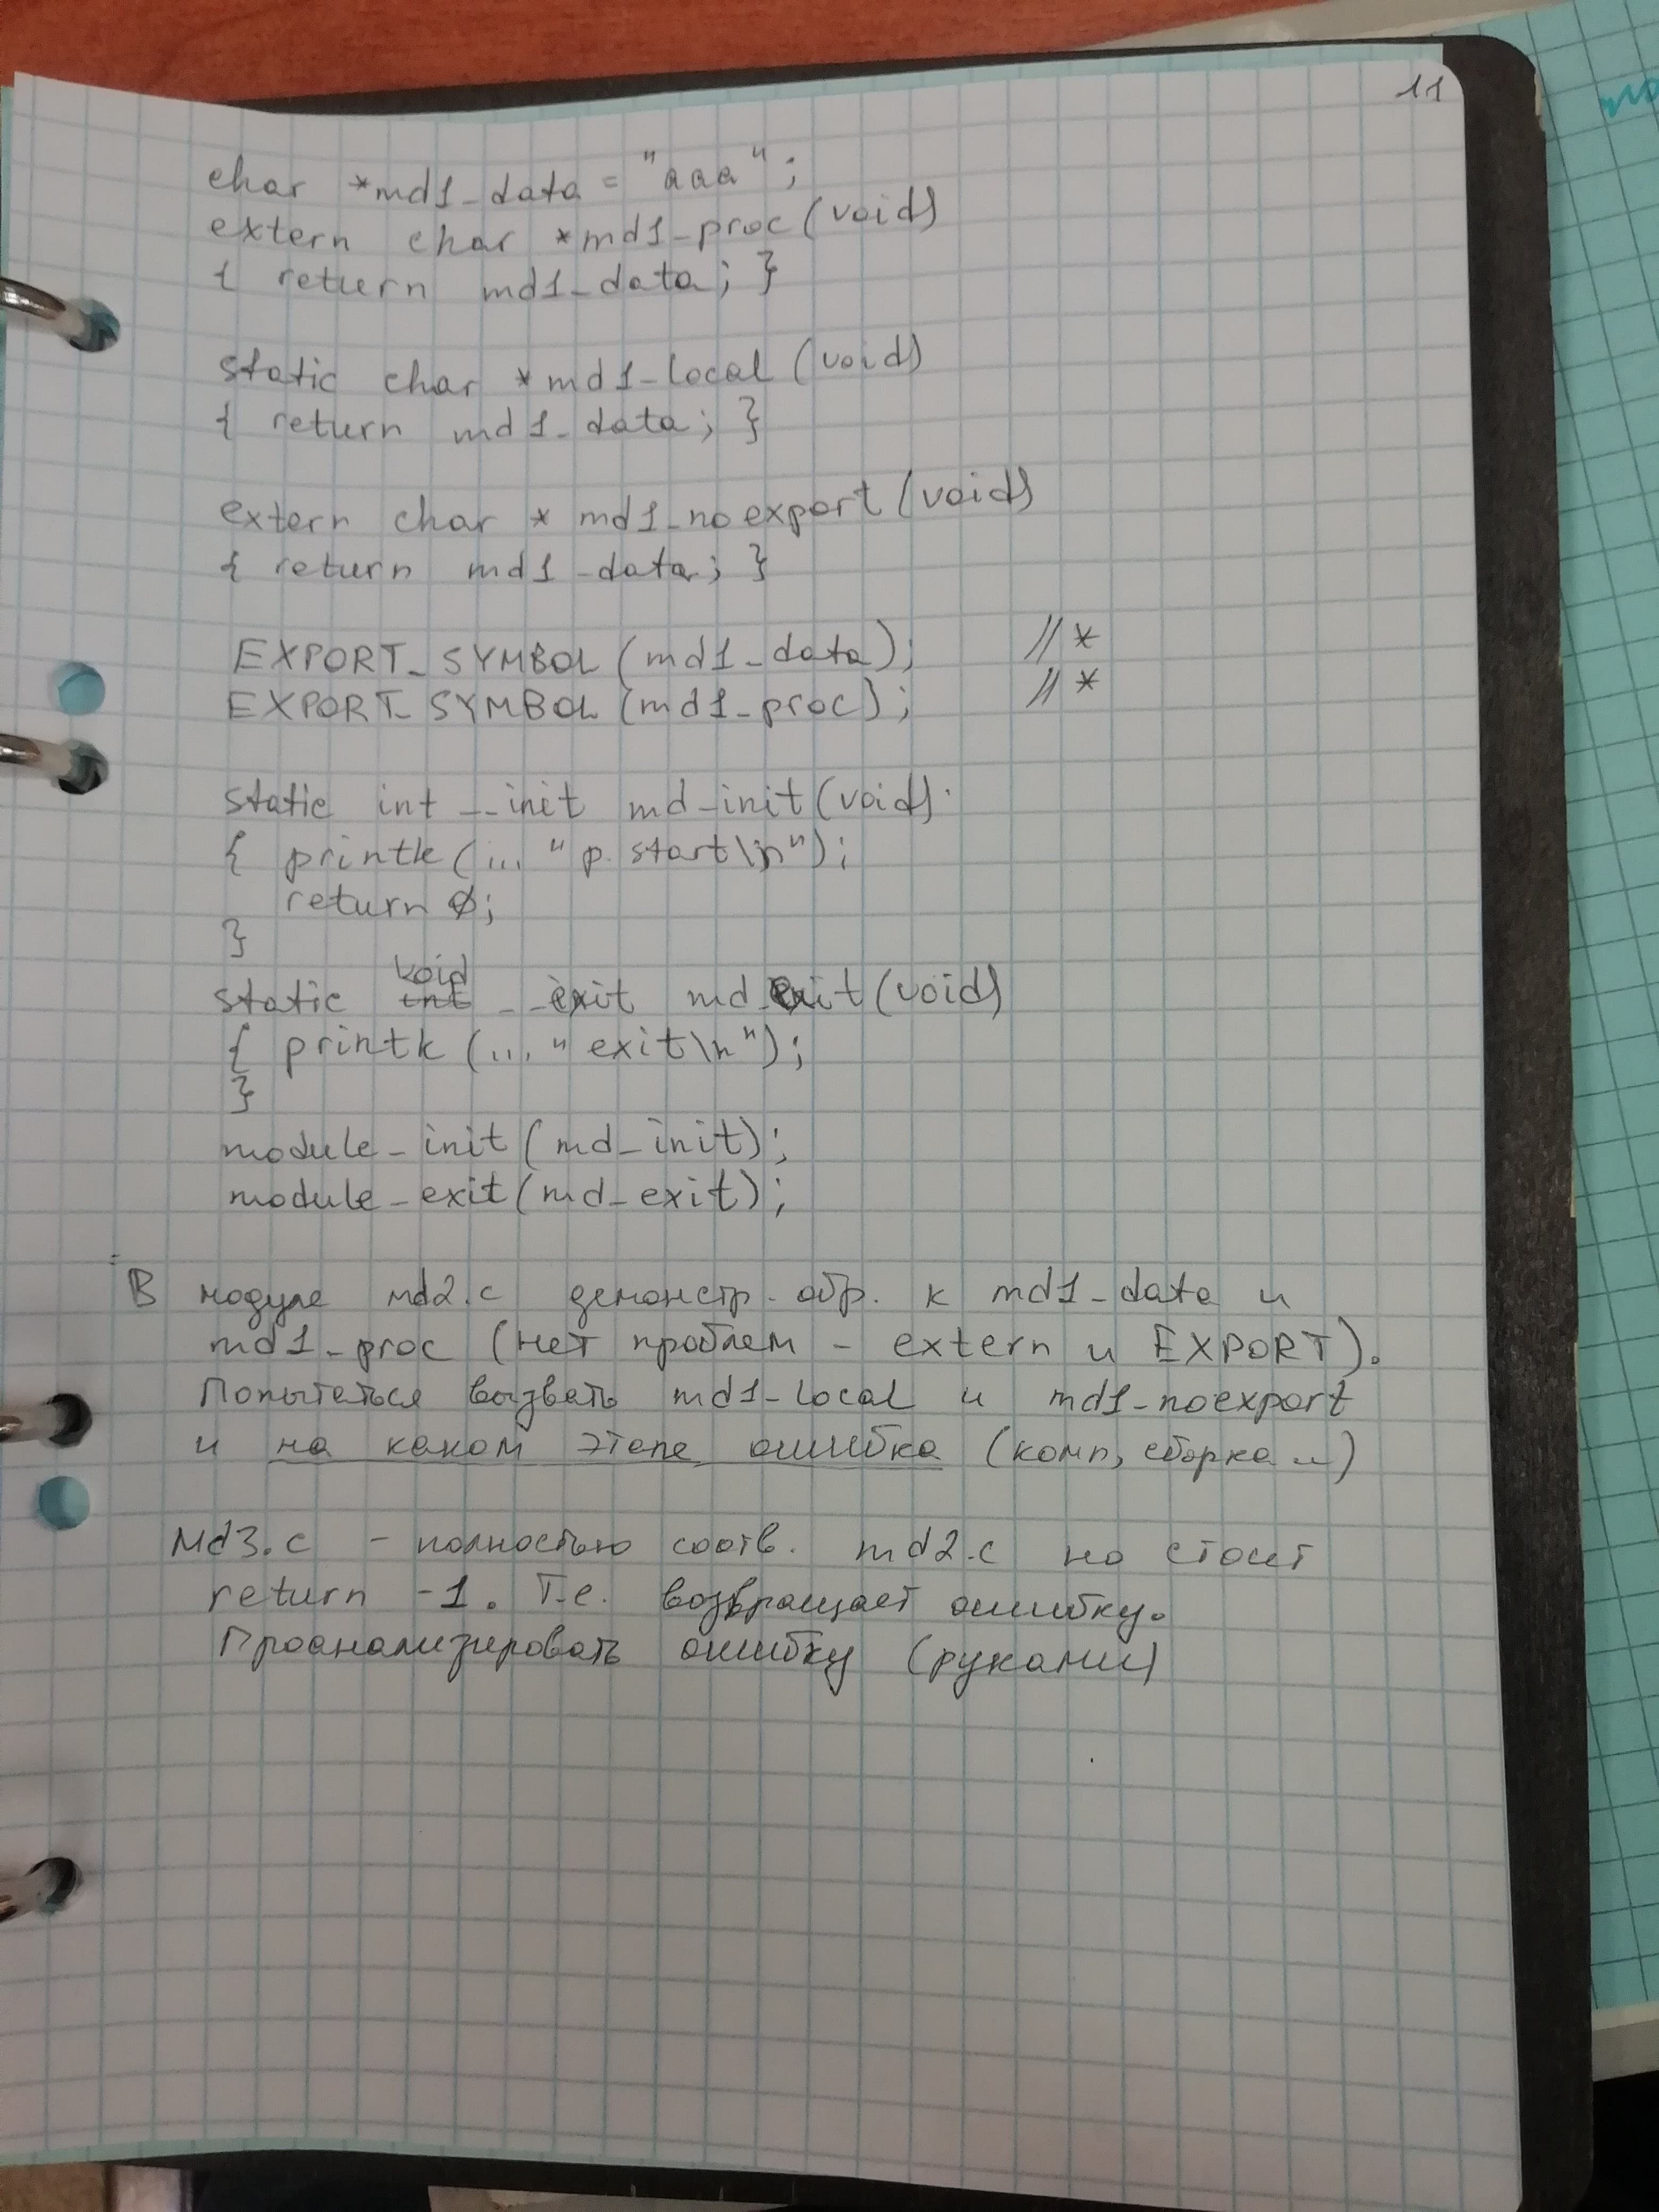 11
char *md1_data = "aaa";
extern char *md1_proc(void)
{ return md1_data; }
static char *md1_local(void)
{ return md1_data; }
extern char * md1_noexport(void)
{ return md1_data; }
EXPORT_SYMBOL(md1_data); //*
EXPORT_SYMBOL(md1_proc); //*
static int __init md_init(void)
{ printk(... "p. start\n");
return 0;
}
static void int __exit md_exit(void)
{ printk(... "exit\n");
}
module_init(md_init);
module_exit(md_exit);
В модуле md2.c демонстр. обр. к md1_data и
md1_proc (нет проблем - extern и EXPORT).
Попытаться вызвать md1_local и md1_noexport
и на каком этапе ошибка (комп, сборка ...)
Md3.c - полностью соотв. md2.c но стоит
return -1. Т.е. возвращает ошибку.
Проанализировать ошибку (руками)